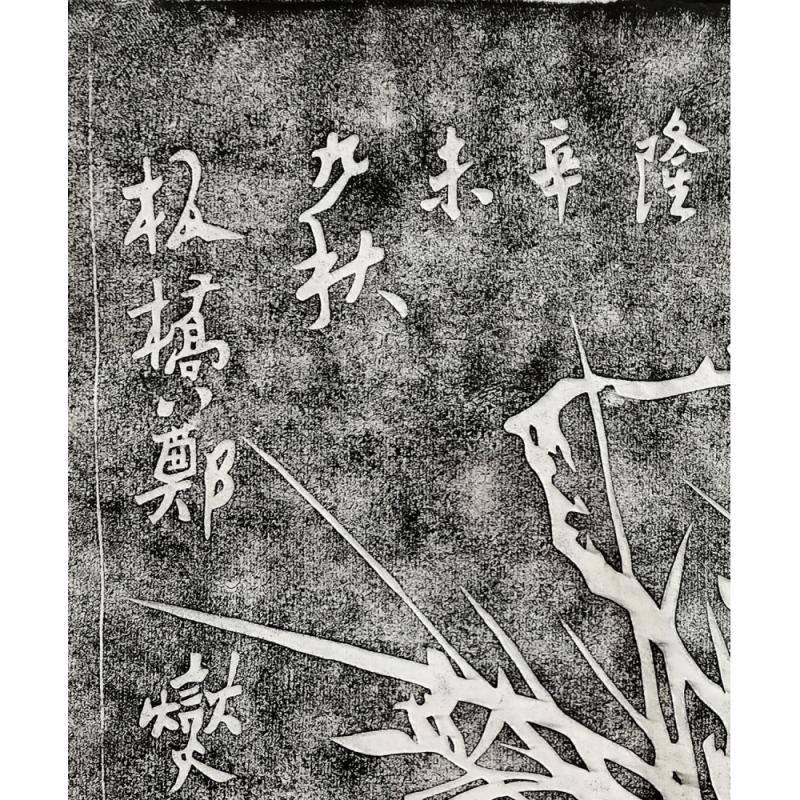 隆
辛
未
九秋
板橋鄭
燮